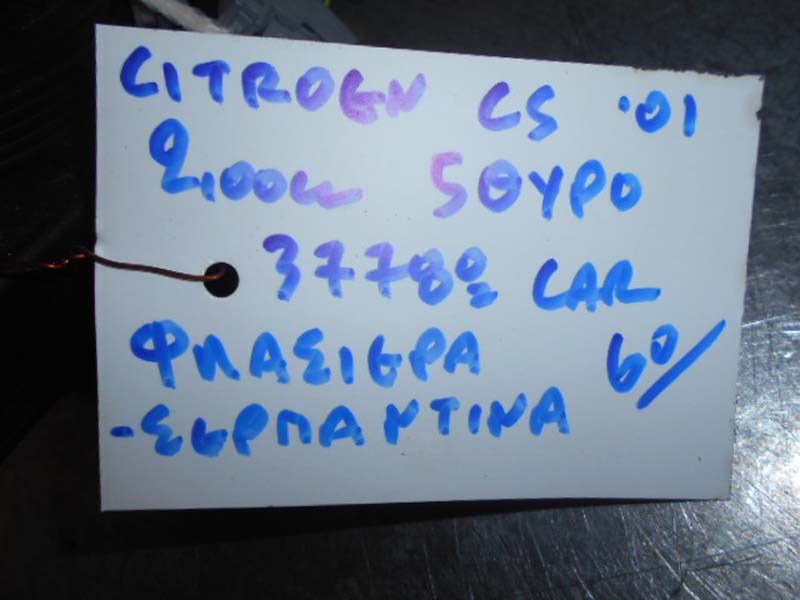 CITROEN C5 '01
2,00cc 5ΘΥΡΟ
37789 CAR
ΦΛΑΣΙΕΡΑ 60/
-ΣΕΡΠΑΝΤΙΝΑ